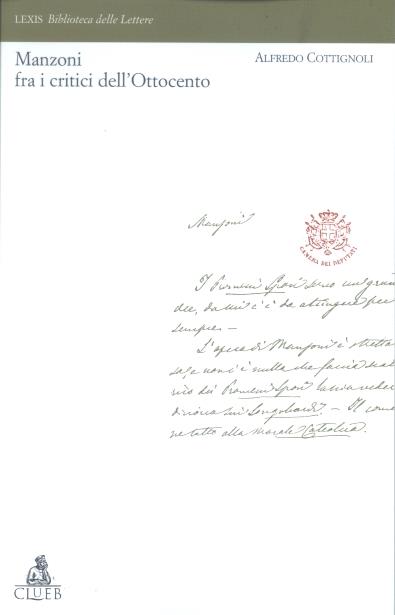 LEXIS Biblioteca delle Lettere
Manzoni
fra i critici dell'Ottocento
ALFREDO COTTIGNOLI
Manzoni
CAMERA DEI DEPUTATI
I Promessi Sposi sono un gran
da attingere per
sempre. —
L'opera di Manzoni è
e non è nulla che faccia
dei Promessi Sposi
sui Longobardi. — Il
tutto alla morale Cattolica.
CLUEB